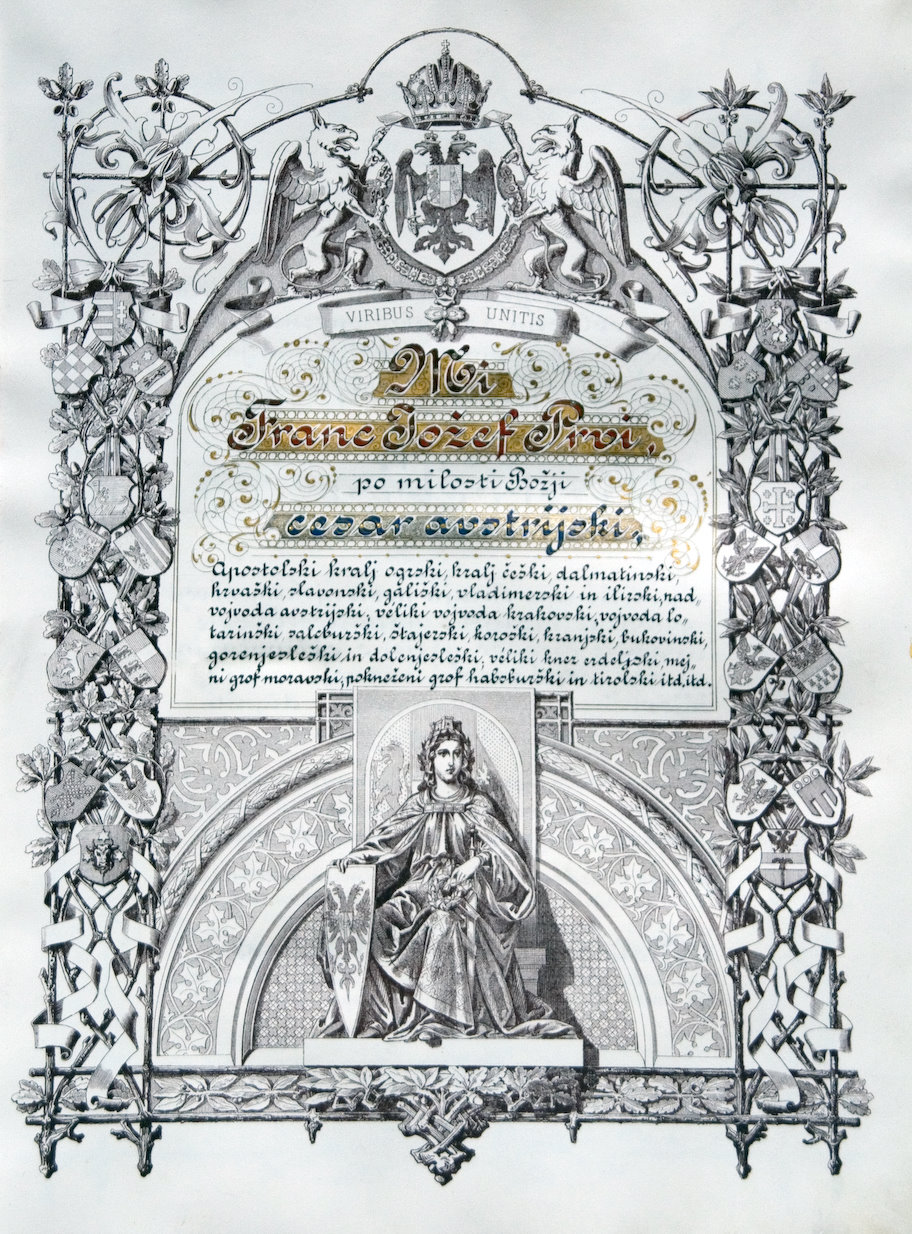 VIRIBUS UNITIS
Mi
Franc Jožef Prvi,
po milosti Božji
cesar avstrijski,
Apostolski kralj ogrski, kralj češki, dalmatinski,
hrvaški, slavonski, gališki, vladimerski in ilirski, nad=
vojvoda avstrijski, véliki vojvoda krakovski, vojvoda lo=
tarinški saleburški, štajerski, koroški, kranjski, bukovinski,
gorenjesleški in dolenjesleški, véliki knez erdeljski, mej=
ni grof moravski, pokneženi grof habsburški in tirolski itd. itd.